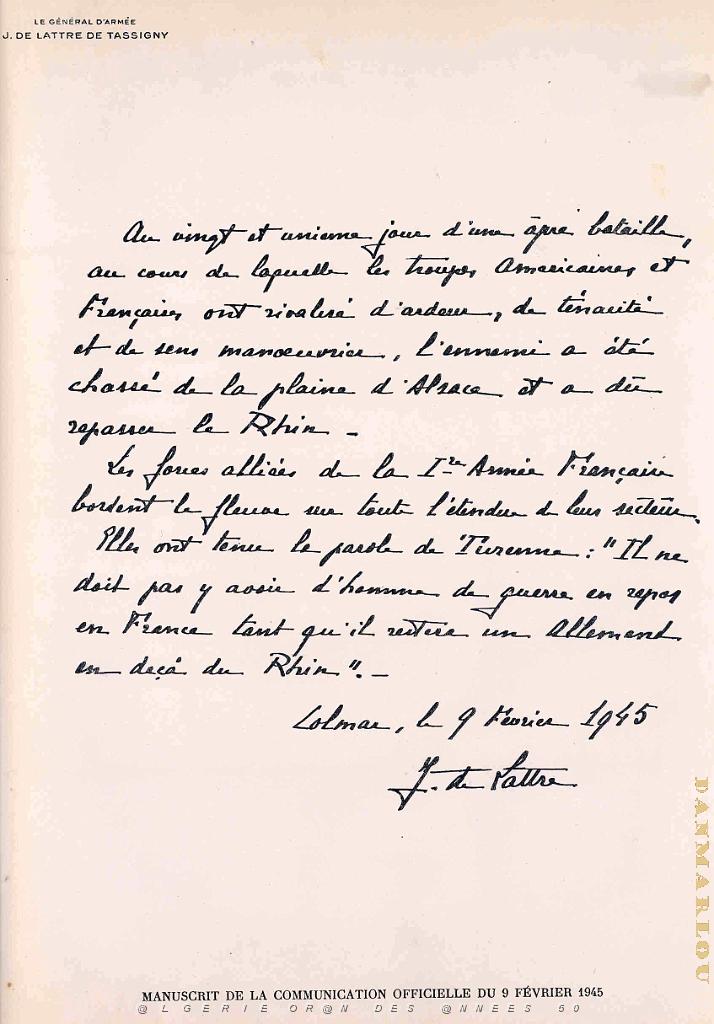 LE GÉNÉRAL D'ARMÉE
J. DE LATTRE DE TASSIGNY
Au vingt et unième jour d'une âpre bataille,
au cours de laquelle les troupes Américaines et
Françaises ont rivalisé d'ardeur, de ténacité
et de sens manœuvrier, l'ennemi a été
chassé de la plaine d'Alsace et a dû
repasser le Rhin _
Les forces alliées de la Ire Armée Française
bordent le fleuve sur toute l'étendue de leur secteur.
Elles ont tenu la parole de Turenne : "Il ne
doit pas y avoir d'homme de guerre en repos
en France tant qu'il restera un Allemand
en deçà du Rhin". _
Colmar, le 9 Février 1945
J. de Lattre
DANMARLOU
MANUSCRIT DE LA COMMUNICATION OFFICIELLE DU 9 FÉVRIER 1945
@LGERIE OR@N DES @NNEES 50